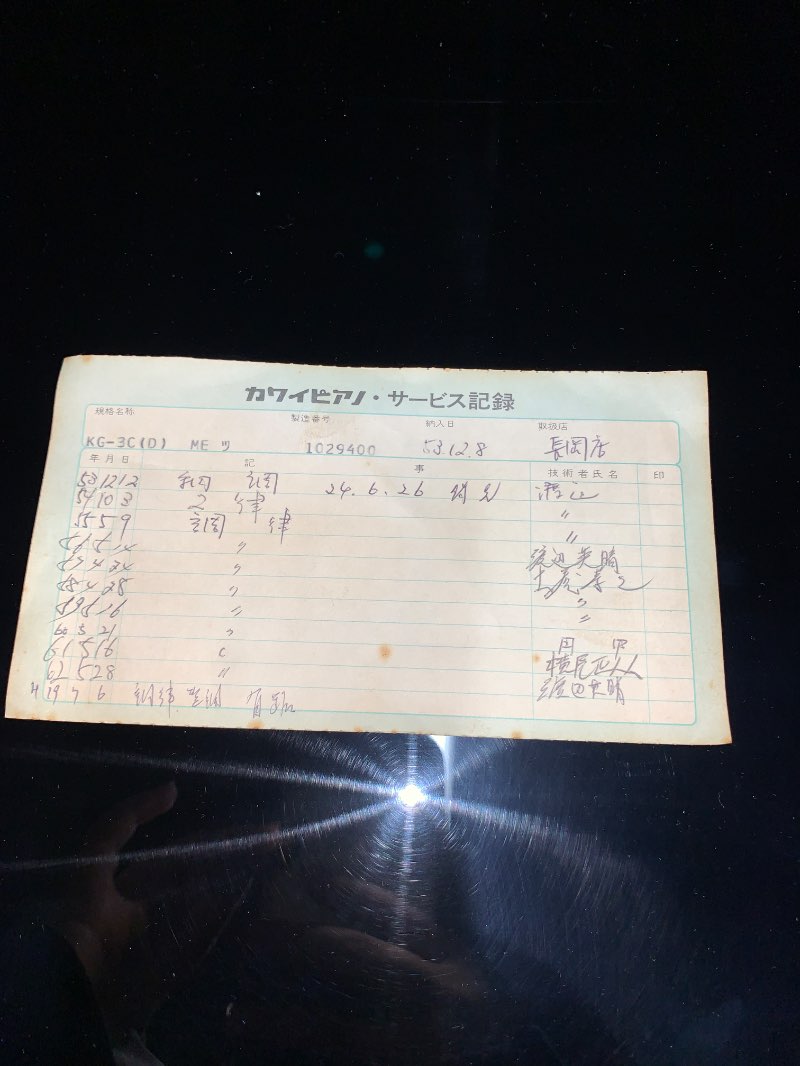 カワイピアノ・サービス記録
規格名称 製造番号 納入日 取扱店
KG-3C(D) ME ツ 1029400 53.12.8 長岡店
年月日 記 事 技術者氏名 印
53 12 12 24.6.26 渡辺
54 10 3 2 律 〃
55 5 9 調 律 〃
56 5 14 〃 渡辺英晴
57 4 24 〃
58 4 28 〃 〃
59 5 16 〃 〃
60 5 21 〃
61 5 16 〃
62 5 28 〃 横尾正人
H 19 7 6 調律 整調 渡辺英晴